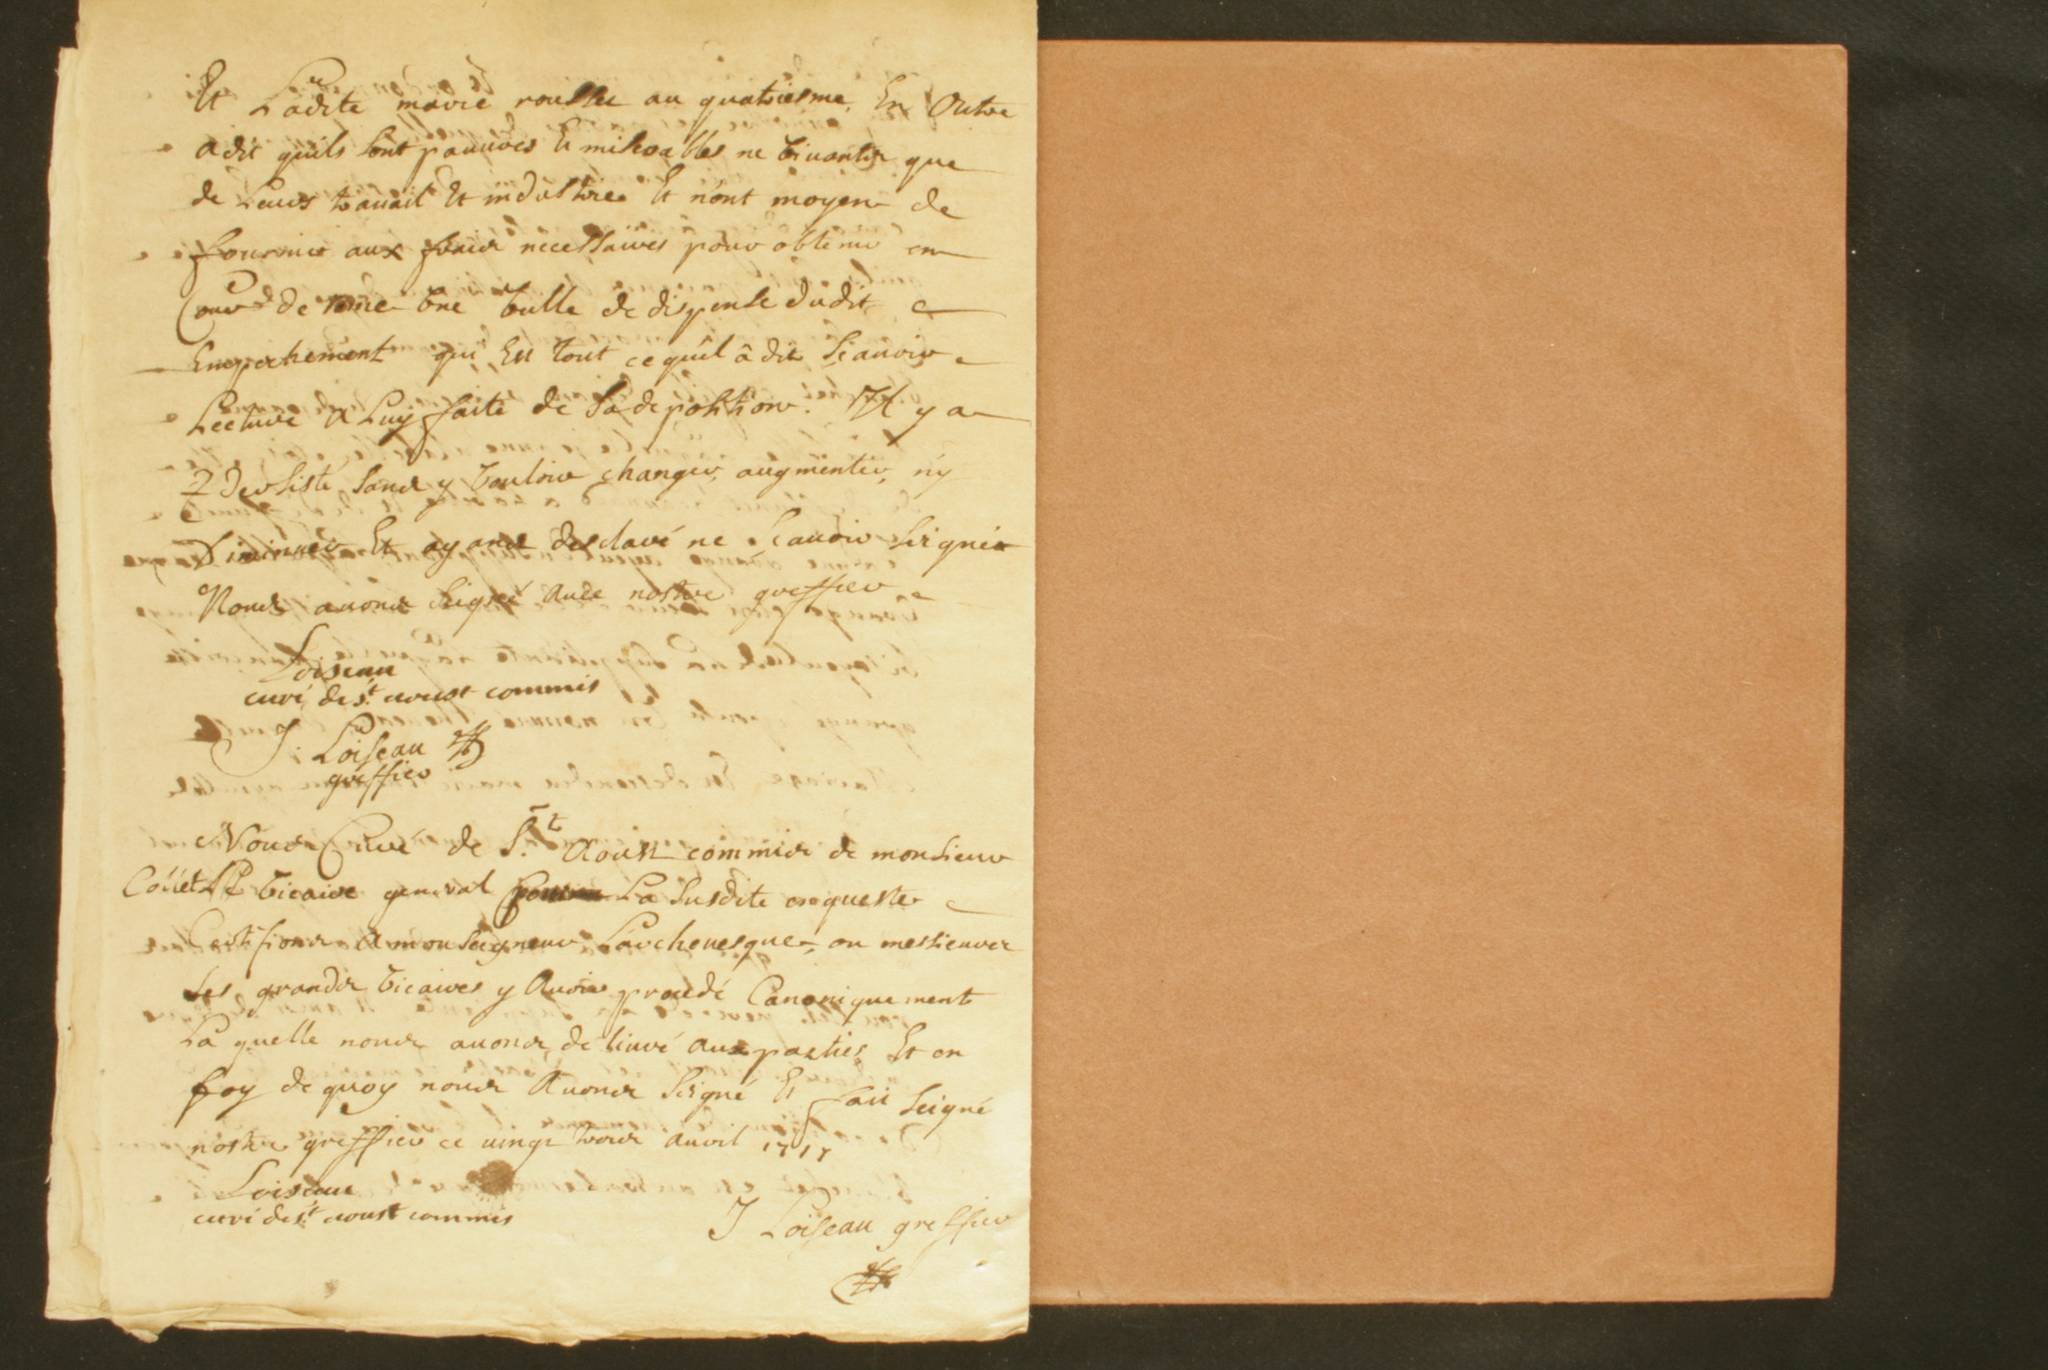 Et Ladite marie roullet au quatriesme, En Outre
a dit quils sont pauures Et miserables ne viuants que
de Leurs trauail Et industrie Et n'ont moyen de
fournir aux fraix necessaires pour obtenir en
Cour de rome vne bulle de dispense dudit
Empechement qui Est tout ce qu'il â dit Sçauoir
Lecture a Luy faite de sa deposition. Il y a
persisté sans y vouloir changer, augmenter, n'y
Diminuer Et ayant desclaré ne Scauoir Seigner
Nous auons Seigné auec nostre greffier
Loiseau
curé de st. aoust commis
J. Loiseau
greffier
Nous Curé de St. Aoust commis de monsieur
Collet vicaire general La Susdite enqueste
Certifions a monseigneur L'archeuesque, ou messieurs
Les grands vicaires y Auoir procedé Canoniquement
La quelle nous auons deliuré aux parties Et en
foy de quoy nous Auons Seigné Et fait Seigné
nostre greffier ce vingt trois auril 1717
Loiseau
curé de st. aoust commis
J Loiseau greffier